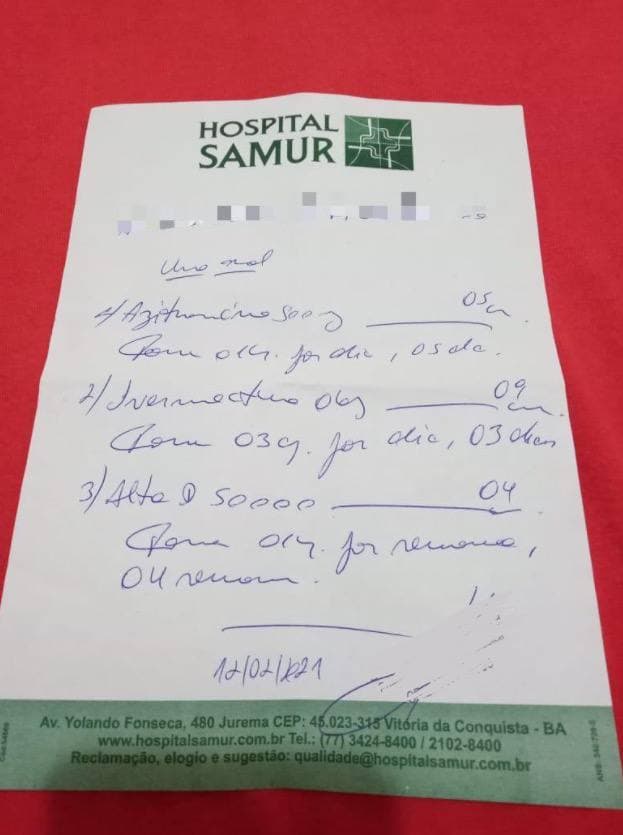 HOSPITAL
SAMUR
Uso oral
1/ Azitromicina 500mg 05
Tomar 01 por dia, 05 dias.
2/ Ivermectina 06mg 09
Tomar 03 por dia, 03 dias
3/ Alta D 50000 04
Tomar 01 por semana,
04 semanas.
12/02/2021
Av. Yolando Fonseca, 480 Jurema CEP: 45.023-315 Vitória da Conquista - BA
www.hospitalsamur.com.br Tel.: (77) 3424-8400 / 2102-8400
Reclamação, elogio e sugestão: qualidade@hospitalsamur.com.br